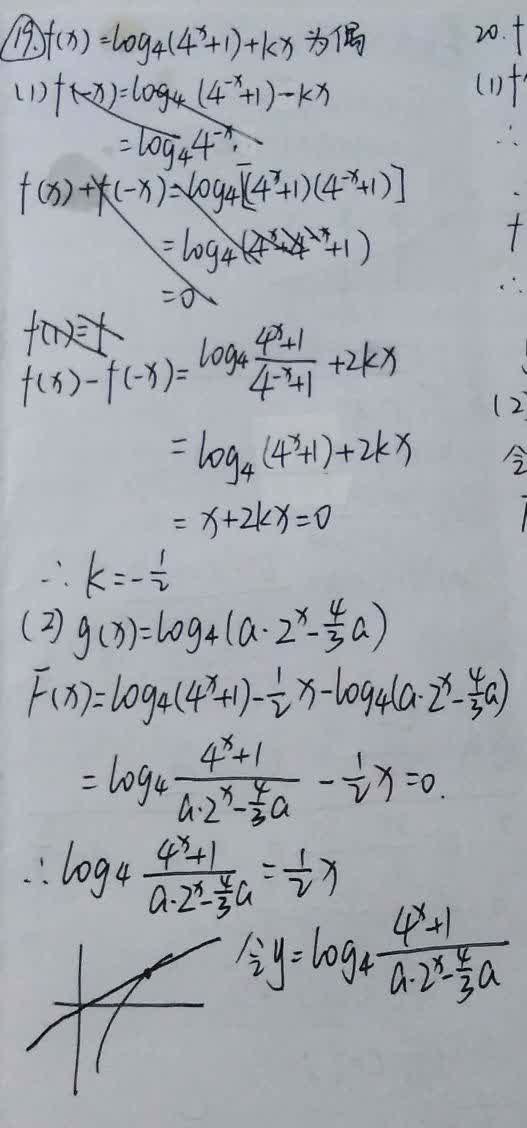 19. f(x)=log₄(4ˣ+1)+kx 为偶
(1) f(-x)=log₄(4⁻ˣ+1)-kx
=log₄4⁻ˣ.
f(x)+f(-x)=log₄[(4ˣ+1)(4⁻ˣ+1)]
=log₄(4ˣ+4⁻ˣ+1)
=0
f(1)=f
f(x)-f(-x)=log₄ (4ˣ+1)/(4⁻ˣ+1) +2kx
=log₄(4ˣ+1)+2kx
=x+2kx=0
∴ k=-1/2
(2) g(x)=log₄(a·2ˣ-4/3a)
F(x)=log₄(4ˣ+1)-1/2x-log₄(a·2ˣ-4/3a)
=log₄ (4ˣ+1)/(a·2ˣ-4/3a) -1/2x=0.
∴ log₄ (4ˣ+1)/(a·2ˣ-4/3a) =1/2x
令y=log₄ (4ˣ+1)/(a·2ˣ-4/3a)
20. f
(1) f
∴
f
∴
(2)
令